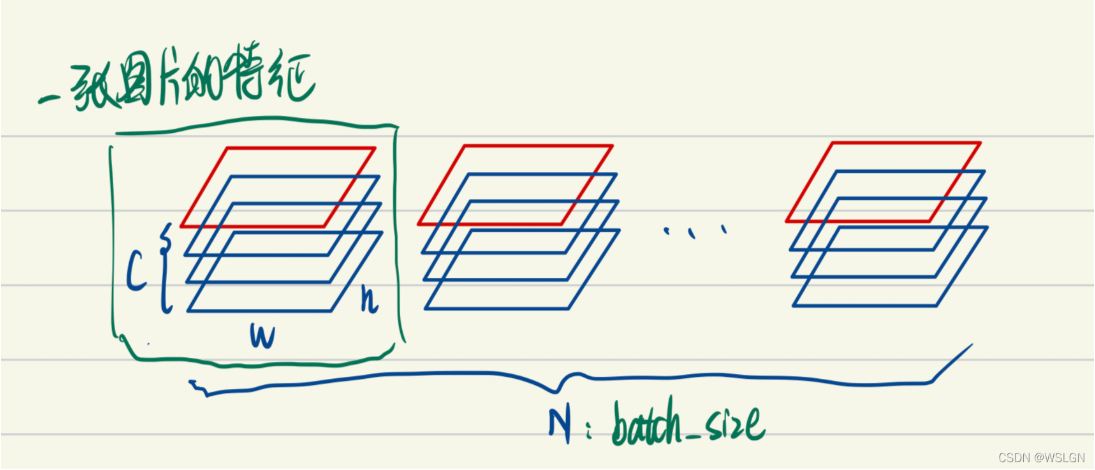 一张图片的特征
C
h
W
N : batch_size
CSDN @WSLGN